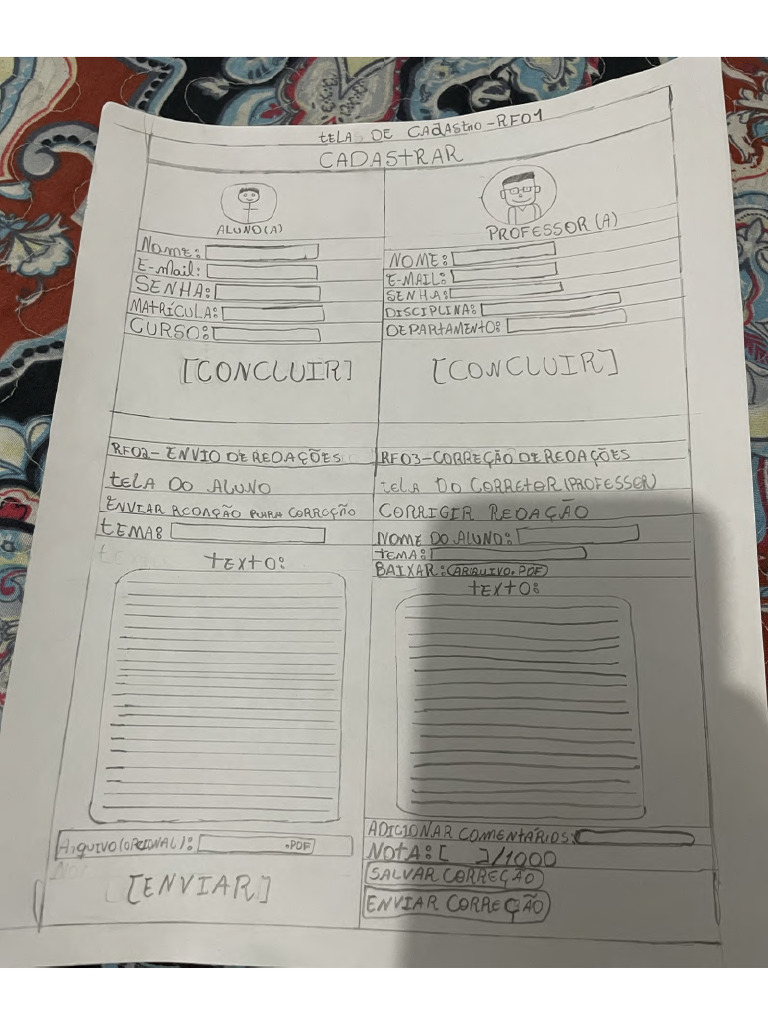 tELAS DE CADAStRO-RF01
CADAStRAR
ALUNO(A)
Nome:
E-mail:
SENHA:
MATRÍCULA:
CURSO:
[CONCLUIR]
PROFESSOR(A)
NOME:
E-MAIL:
SENHA:
DISCIPLINA:
DEPARtAMENtO:
[CONCLUIR]
RF02- ENVIO DE REDAÇÕES
tELA DO ALUNO
ENVIAR REDAÇÃO PARA CORREÇÃO
tEMA:
tEXtO:
Arquivo(OPCIONAL): .PDF
[ENVIAR]
RF03-CORREÇÃO DE REDAÇÕES
tELA DO CORREtOR(PROFESSOR)
CORRIGIR REDAÇÃO
NOME DO ALUNO:
tEMA:
BAIXAR:(ARQUIVO.PDF)
tEXtO:
ADICIONAR COMENtÁRIOS:
NOtA:[ ]/1000
SALVAR CORREÇÃO
ENVIAR CORREÇÃO